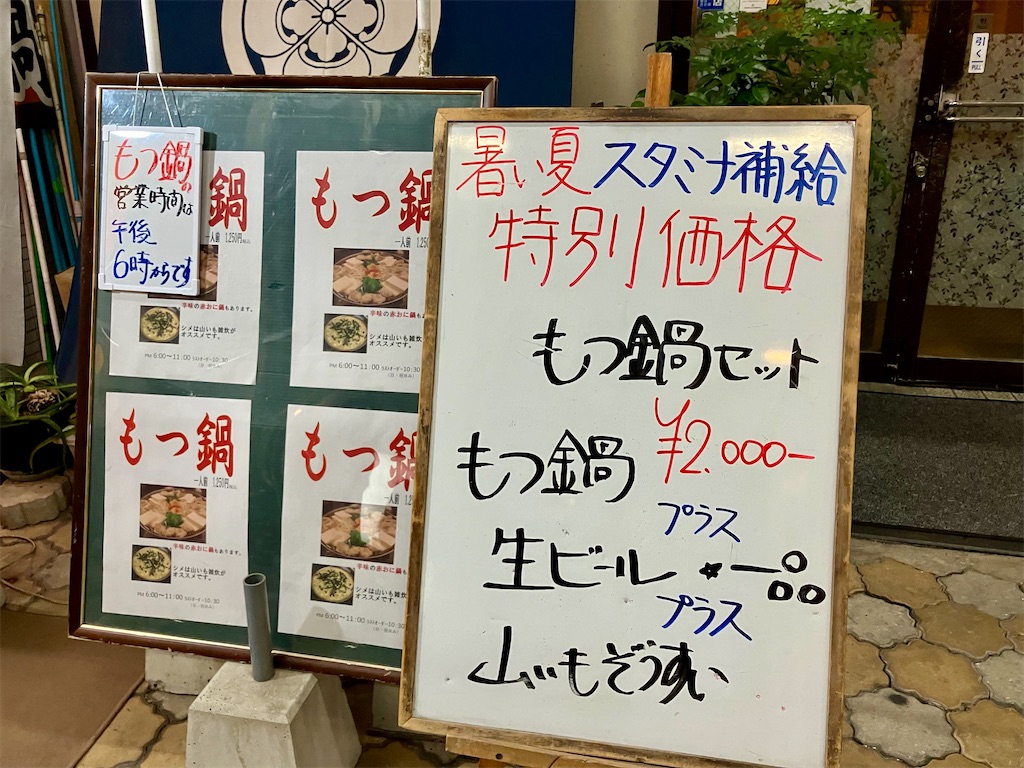 もつ鍋の
営業時間は
午後
6時からです
鍋
一人前 1,250円税込
辛味の赤おに鍋もあります。
シメは山いも雑炊が
オススメです。
PM 6:00〜11:00 ラストオーダー10:30
もつ鍋
一人前 1,25
辛味の赤おに鍋も
シメは山いも雑炊が
オススメです。
PM 6:00〜11:00 ラストオーダー10:30
もつ鍋
一人前 1,250円税込
辛味の赤おに鍋もあります。
シメは山いも雑炊が
オススメです。
PM 6:00〜11:00 ラストオーダー10:30
もつ鍋
一人前 1,2
辛味の赤おに鍋も
シメは山いも雑炊が
オススメです。
PM 6:00〜11:00 ラストオーダー10:30
暑い夏 スタミナ補給
特別価格
もつ鍋セット
¥2.000-
もつ鍋
プラス
生ビール・一品
プラス
山いもぞうすい
引く
PULL